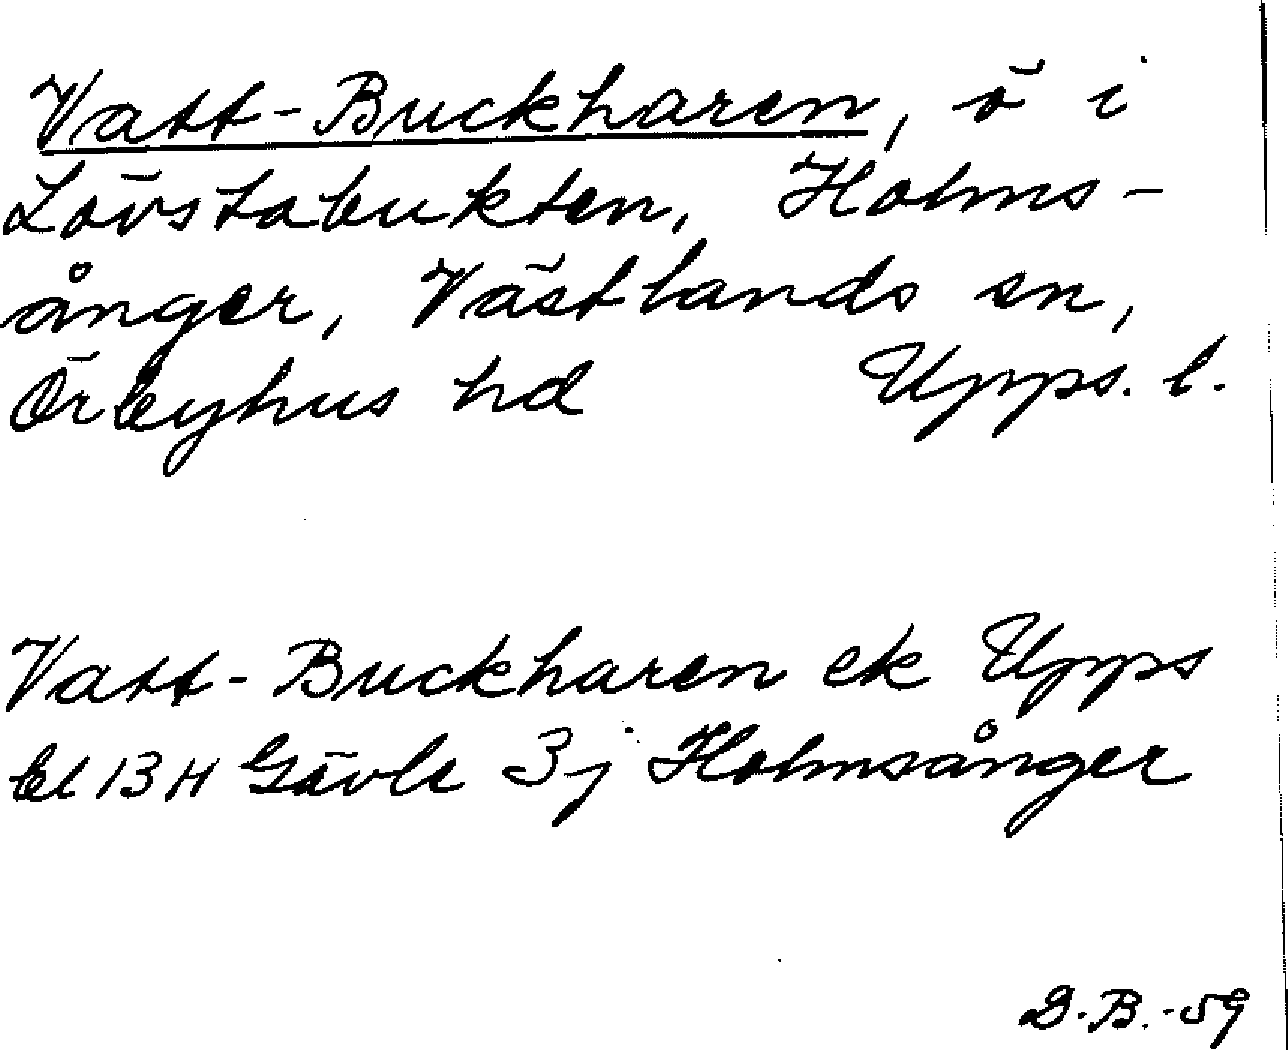 Vatt-Buckharen, ö i
Lövstabukten, Holms-
ånger, Västlands sn,
Örbyhus hd Upps. l.
Vatt-Buckharen ek Upps
bl 13 H Gävle 3j Holmsånger
D.B.-59